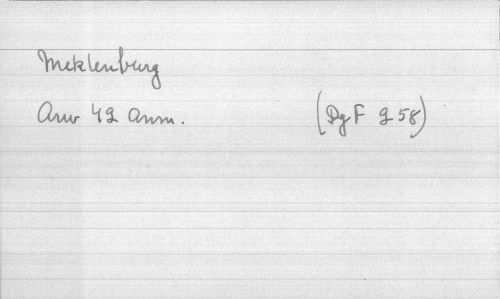 Meklenburg
Anw 42 Anm. (Dg F 258)